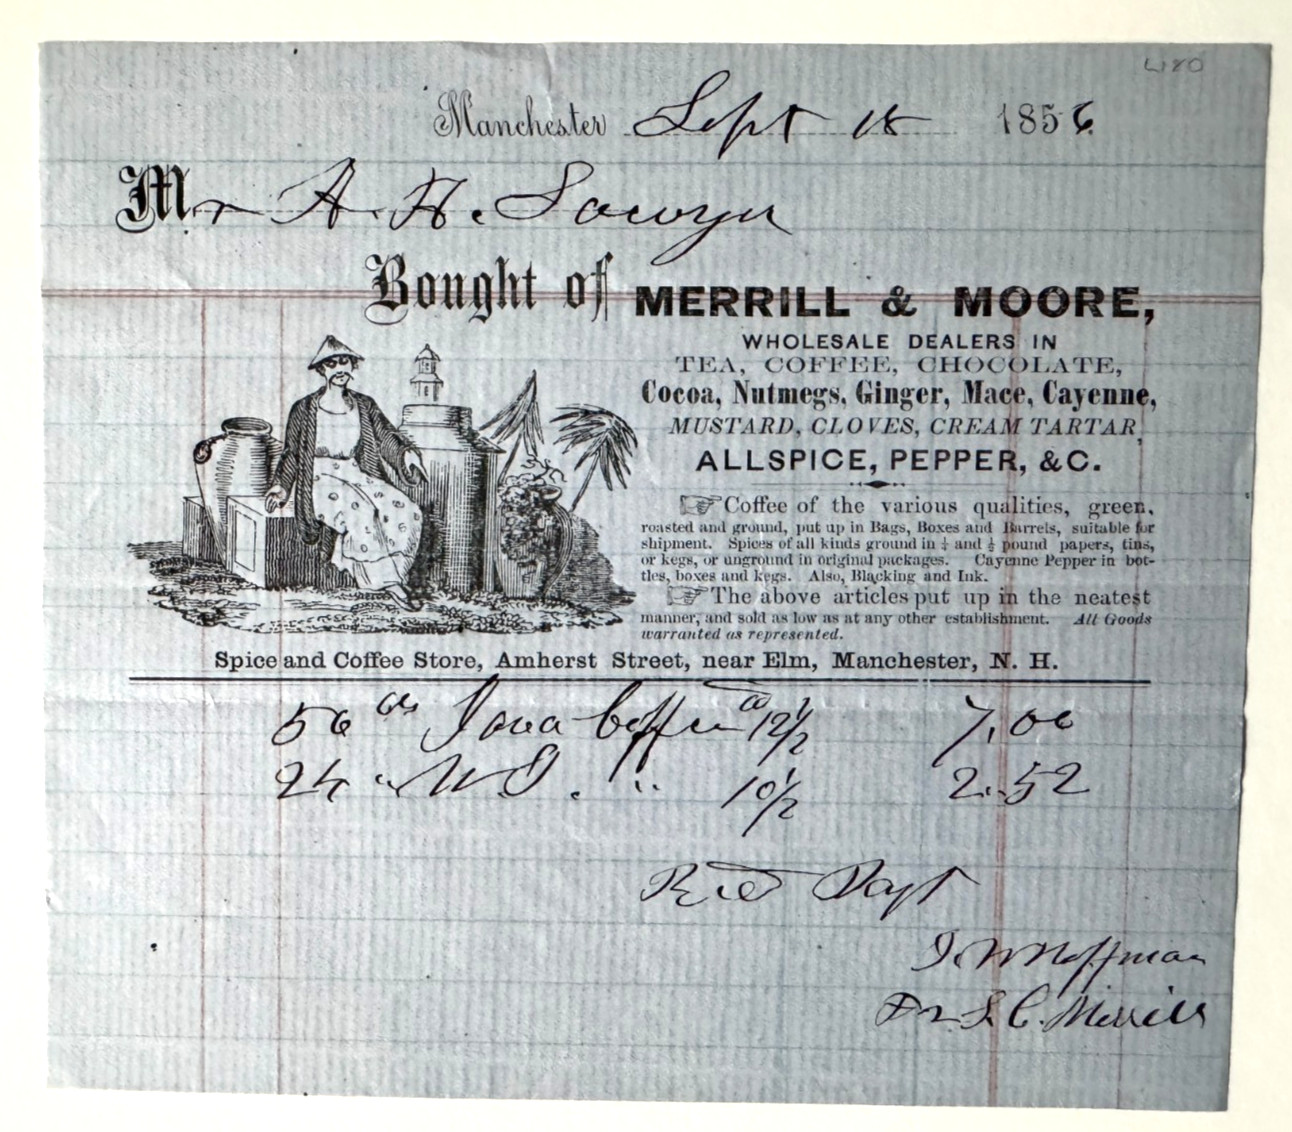 4180
Manchester Sept 18 1856
Mr A. H. Sawyer
Bought of MERRILL & MOORE,
WHOLESALE DEALERS IN
TEA, COFFEE, CHOCOLATE,
Cocoa, Nutmegs, Ginger, Mace, Cayenne,
MUSTARD, CLOVES, CREAM TARTAR,
ALLSPICE, PEPPER, &C.
☞Coffee of the various qualities, green,
roasted and ground, put up in Bags, Boxes and Barrels, suitable for
shipment. Spices of all kinds ground in ¼ and ½ pound papers, tins,
or kegs, or unground in original packages. Cayenne Pepper in bot-
tles, boxes and kegs. Also, Blacking and Ink.
☞The above articles put up in the neatest
manner, and sold as low as at any other establishment. All Goods
warranted as represented.
Spice and Coffee Store, Amherst Street, near Elm, Manchester, N. H.
56 lbs Java Coffee @ 12½ 7.00
24 " W I. " 10½ 2.52
Recd Payt
Hoffman
For S. C. Merrill